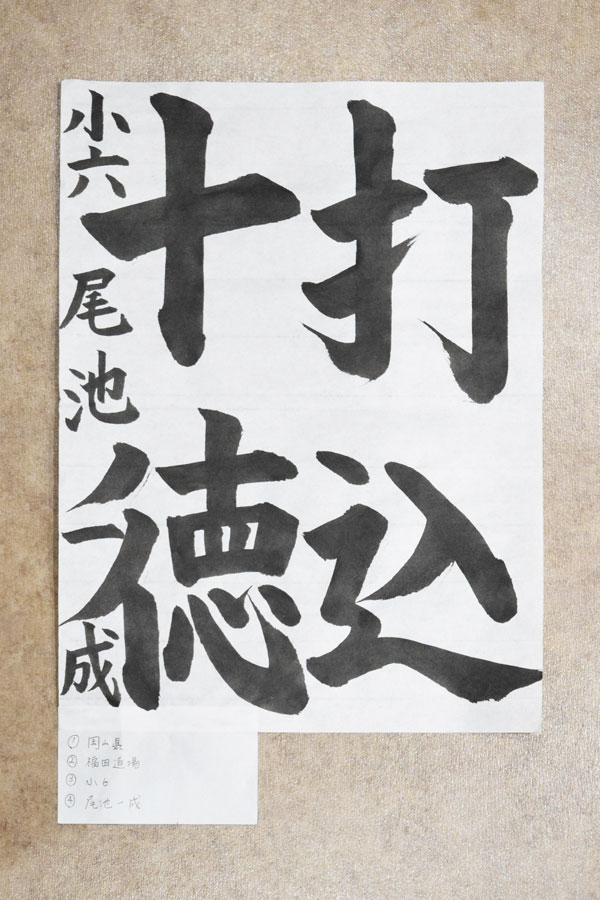 打込
十徳
小六 尾池一成
① 岡山県
② 福田道場
③ 小6
④ 尾池一成